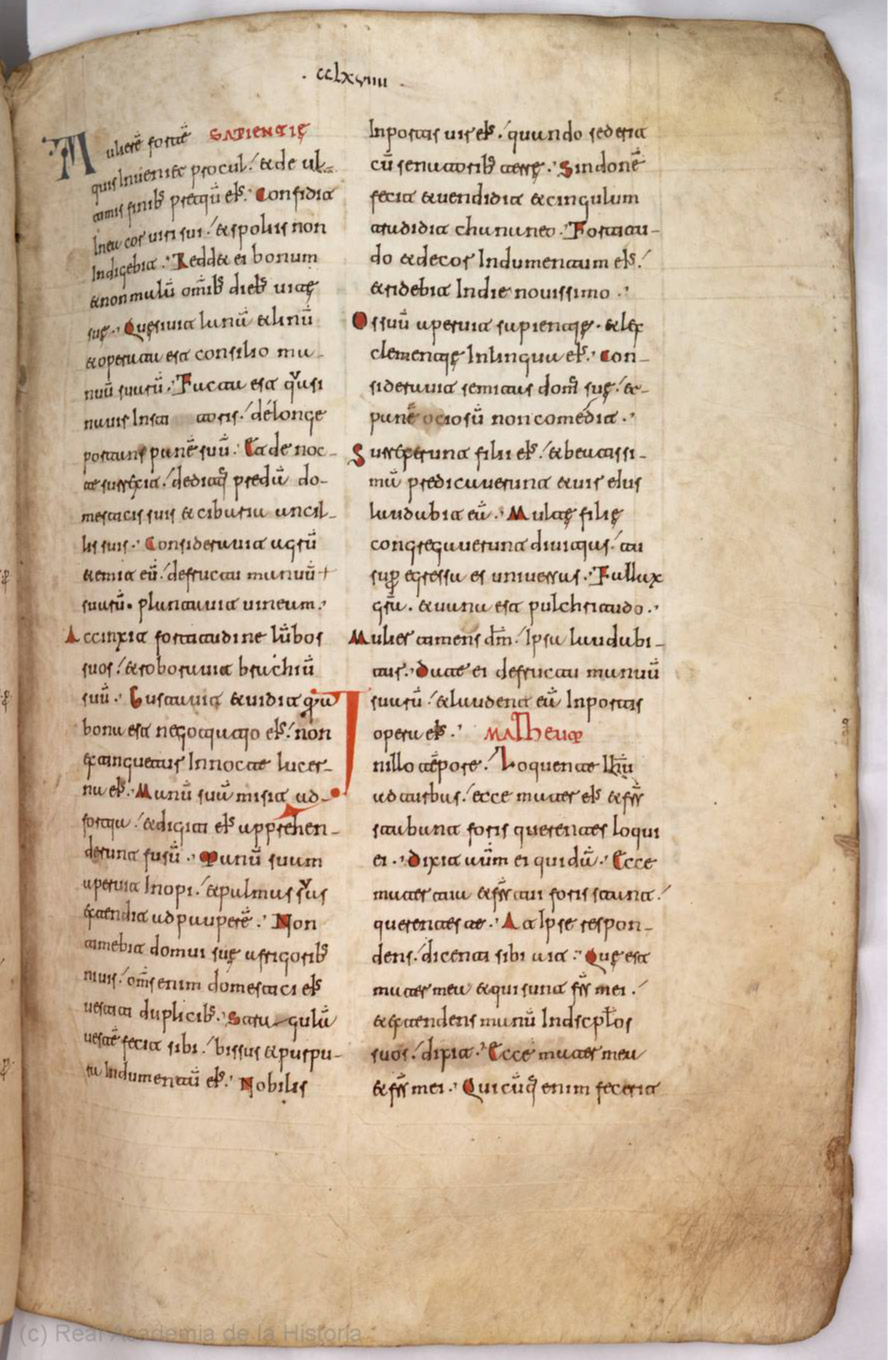 · cclxviiii ·
Mulierē fortē SAPIENTIĘ
quis Inueniet procul / & de ul-
timis finib; pretiū ei'. Confidit
In ea cor uiri sui / & spoliis non
Indigebit. Reddet ei bonum
& non malū omīb; dieb; uitę
suę. Quęsiuit lanā & linū
& operata est consilio ma-
nuū suarū. Facta est q̄si
nauis Insti toris / de longe
portans panē suū. Et de noc-
te surrexit / deditq; predā do-
mesticis suis & cibaria ancil-
lis suis. Considerauit agrū
& emit eū / de fructu manuū
suarū. plantauit uineam.
Accinxit fortitudine lūbos
suos / & roborauit brachiū
suū. Gustauit & uidit q̄a
bona est negotiatio ei' / non
extinguetur In nocte lucer-
na ei'. Manū suā misit ad
fortia / & digiti ei' apprehen-
derunt fusū. Manū suam
aperuit Inopi / & palmas s̄as
extendit ad pauperē. Non
timebit domui suę a frigorib;
niuis / om̄s enim domestici ei'
uestiti duplicib;. Stra-gulā
uestē fecit sibi / bissus & purpu-
ra Indumentū ei'. Nobilis
In portis uir ei' / quando sederit
cū senatorib; terrę. Sindonē
fecit & uendidit & cingulum
tradidit chananeo. Fortitu-
do & decor Indumentum ei' /
& ridebit In die nouissimo.
Os suū aperuit sapientię. & lex
clementię In lingua ei'. Con-
siderauit semitas dom' suę / &
panē ociosū non comedit.
Surrexerunt filii ei' / & beatissi-
mā predicauerunt & uir eius
laudabit eā. Multę filię
congregauerunt diuitias / tu
supgressa es uniuersas. Fallax
gr̄a. & uana est pulchritudo.
Mulier timens dn̄m / Ipsa laudabi-
tur. Date ei de fructu manuū
suarū / & laudent eā In portis
opera ei'. MATheum
In illo tēpore / Loquente Ih̄u
ad turbas / ecce mater ei' & fr̄s
stabunt foris querentes loqui
ei. Dixit aūm ei quidā. Ecce
mater tua & fr̄s tui foris stant /
querentes te. At Ipse respon-
dens / dicenti sibi ait. Quę est
mater mea & qui sunt fr̄s mei.
& extendens manū In discipt̄os
suos / dixit. Ecce mater mea
& fr̄s mei. Quicūq; enim fecerit
(c) Real Academia de la Historia